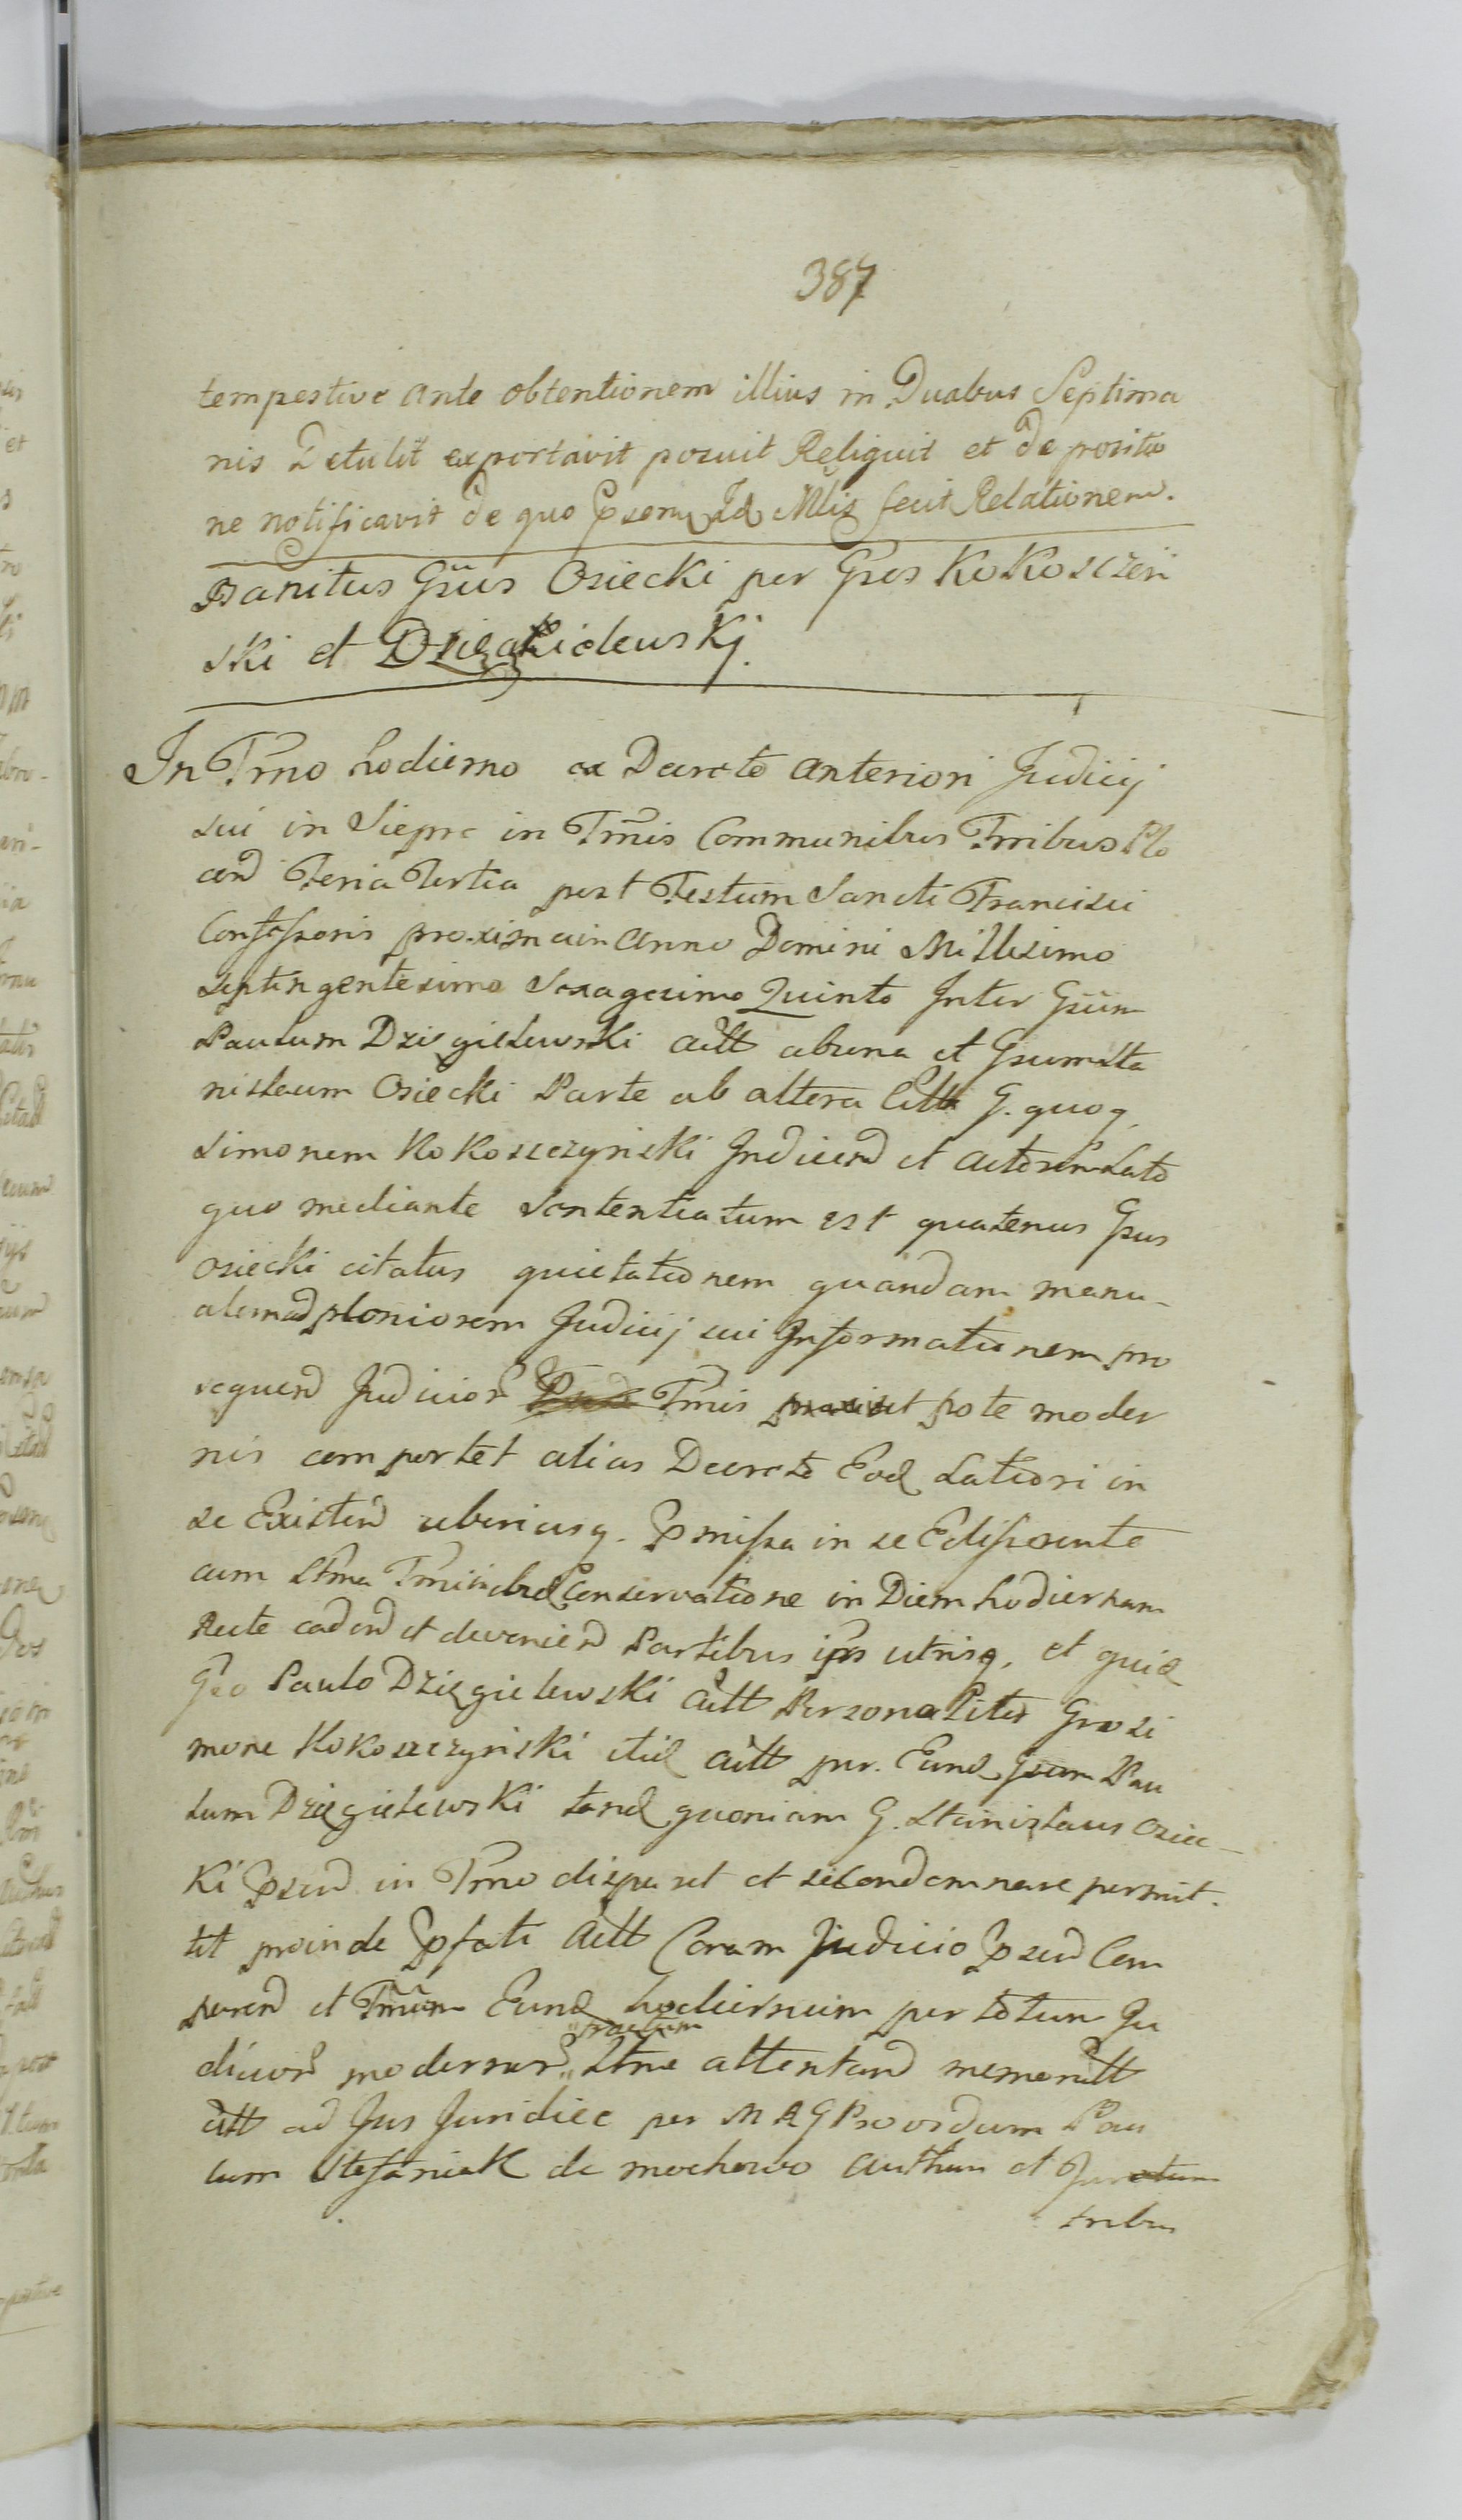 387
tempestive ante obtentionem illius in Duabus Septima
nis Detulit exportavit posuit Reliquit et de positio
ne notificavit de quo Psenm Id Mlis fecit Relationem.
Banitus Gsus Osiecki per Gses Kokosczeń
ski et Dzięgielewskj.
In Tmno hodierno ex Decreto anteriori Judicij
sui in Sieprc in Tmnis Communibus Trribus Plo
cen Feria Tertia post Festum Sancti Francisci
Confessoris proxima in Anno Domini Millesimo
Septingentesimo Sexagesimo Quinto Inter Gsum
Paulum Dzięgielewski Actt abuna et Gsum Sta
nislaum Osiecki Parte ab altera Citt G. quoq
Simonem Kokoszczyński Indicend et actorem Lato
quo mediante Sententiatum est quatenus Gsus
Osiecki citatus quietationem quandam manu-
alem ad pleniorem Judicij sui Informationem pro
sequend Judicior Tmis ut pote moder
nis comportet alias Decreto Eod Latiori in
se Existen uberiusq. Pmissa in se Edisserente
cum Conservatione in Diem hodiernam
Recte caden et devenien Partibus ips utrisq, et quid
Gso Paulo Dzięgielewski Actt Personaliter Gso Si
mone Kokoszczyński itid Actt per Eund Gsum Pau
lum Dzięgielewski tand quoniam G. Stanislaus Osiec-
ki Psen in Tmno disparet et se condemnare permit-
tit proinde Pfati Actt Coram Judicio Psen Com
paren et Tmnum Eund hodiernum per totum Ju
tractum
dicior modernor Ltme attentand memoratt
Citt ad Jus Juridice per M R G Providum Pau
lum Stefaniak de mochowo Authen et Juratum
tribu